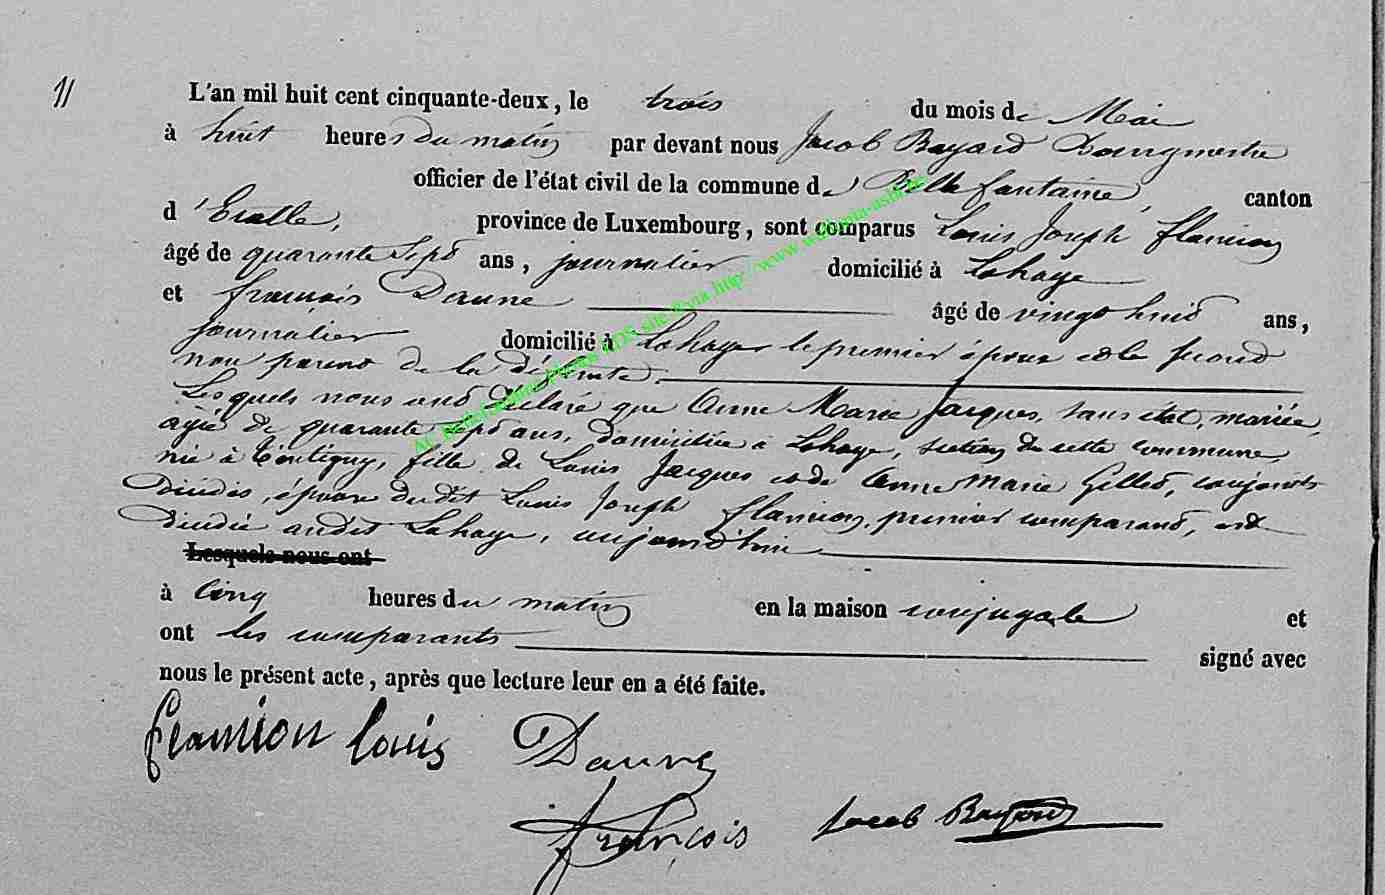 11
L'an mil huit cent cinquante-deux, le trois du mois de Mai
à huit heures du matin par devant nous Jacob Bayard Bourgmestre
officier de l'état civil de la commune de Bellefontaine, canton
d'Etalle, province de Luxembourg, sont comparus Louis Joseph flamion
âgé de quarante sept ans, journalier domicilié à Lahage
et françois Dauve âgé de vingt huit ans,
journalier domicilié à Lahage le premier époux et le second
non parent de la défunte.
Lesquels nous ont déclaré que Anne Marie Jacques, sans état, mariée,
agée de quarante sept ans, domiciliée à Lahage, section de cette commune,
née à Tintigny, fille de Louis Jacques et de Anne Marie Gillet, conjoints
décédés, épouse dudit Louis Joseph flamion, premier comparant, est
décédée audit Lahage, aujourd'hui
Lesquels nous ont
à cinq heures du matin en la maison conjugale et
ont les comparants signé avec
nous le présent acte, après que lecture leur en a été faite.
flamion louis Dauve
françois Jacob Bayard